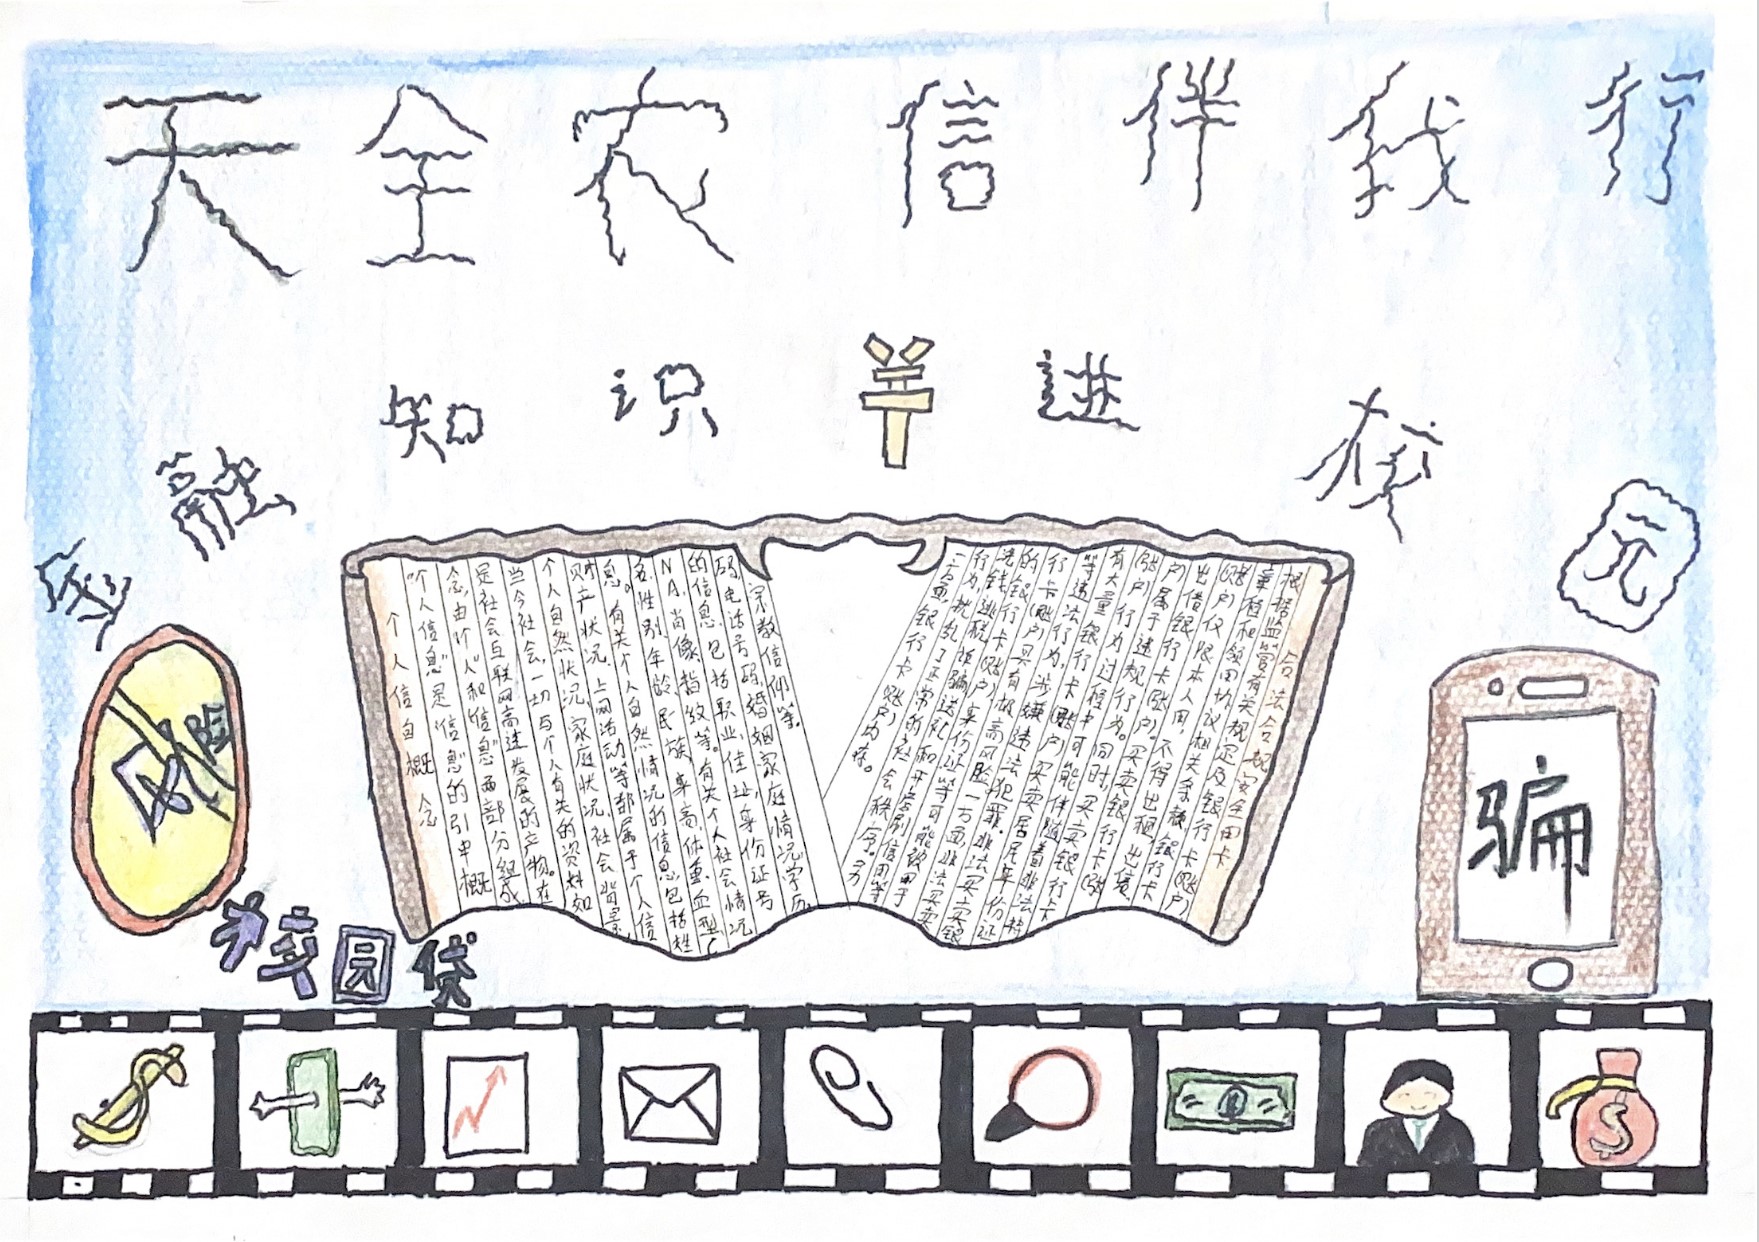 天全农信伴我行
金融知识半进校园
风险
校园贷
骗
个人信息概念
“个人信息”是“信息”的引申概
念,由“个人”和“信息”两部分组成
是社会互联网高速发展的产物。在
当今社会,一切与个人有关的资料如
个人自然状况,家庭状况,社会背景
财产状况,上网活动等都属于个人信
息。有关个人自然情况的信息包括姓
名,性别,年龄,民族,身高,体重,血型(
NA,肖像,指纹等。有关个人社会情况
的信息,包括职业,住址,身份证号
码,电话号码,婚姻,家庭情况,学历,
宗教信仰等。
合法合规安全用卡
根据监管有关规定及银行卡(账户)
章程和领用协议相关条款,银行卡
(账户)仅限本人用,不得出租,出借,
出借银行卡(账户)。买卖银行卡
户)属于违规行为。同时,买卖银行卡(账
(账户)行为过程中可能伴随着非法持
有大量银行卡(账户)
等违法行为,涉嫌违法犯罪。非法买卖银
行卡(账户)买卖居民身份证
的银行卡(账户)具有极高风险一方面,非法买卖
洗钱,逃税,诈骗,送礼和开店刷信用等
行为,扰乱了正常的社会秩序。另
一方面,银行卡(账户)内